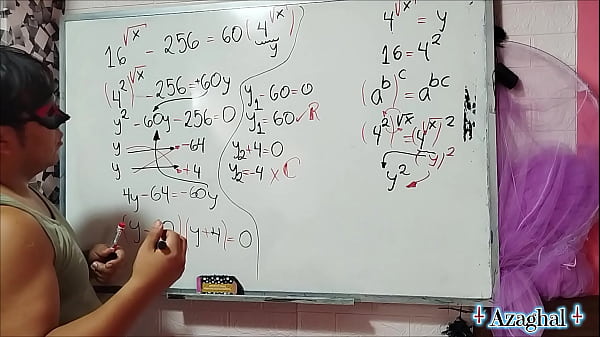 16^√x - 256 = 60(4^√x)
y
(4²)^√x - 256 = +60y
y² - 60y - 256 = 0
y -64
y +4
4y - 64y = -60y
(y - 0)(y + 4) = 0
y₁ - 60 = 0
y₁ = 60 ✓ R
y₂ + 4 = 0
y₂ = -4 × C
4^√x = y
16 = 4²
(a^b)^c = a^bc
(4²)^√x = (4^√x)²
(y)²
y²
Azaghal